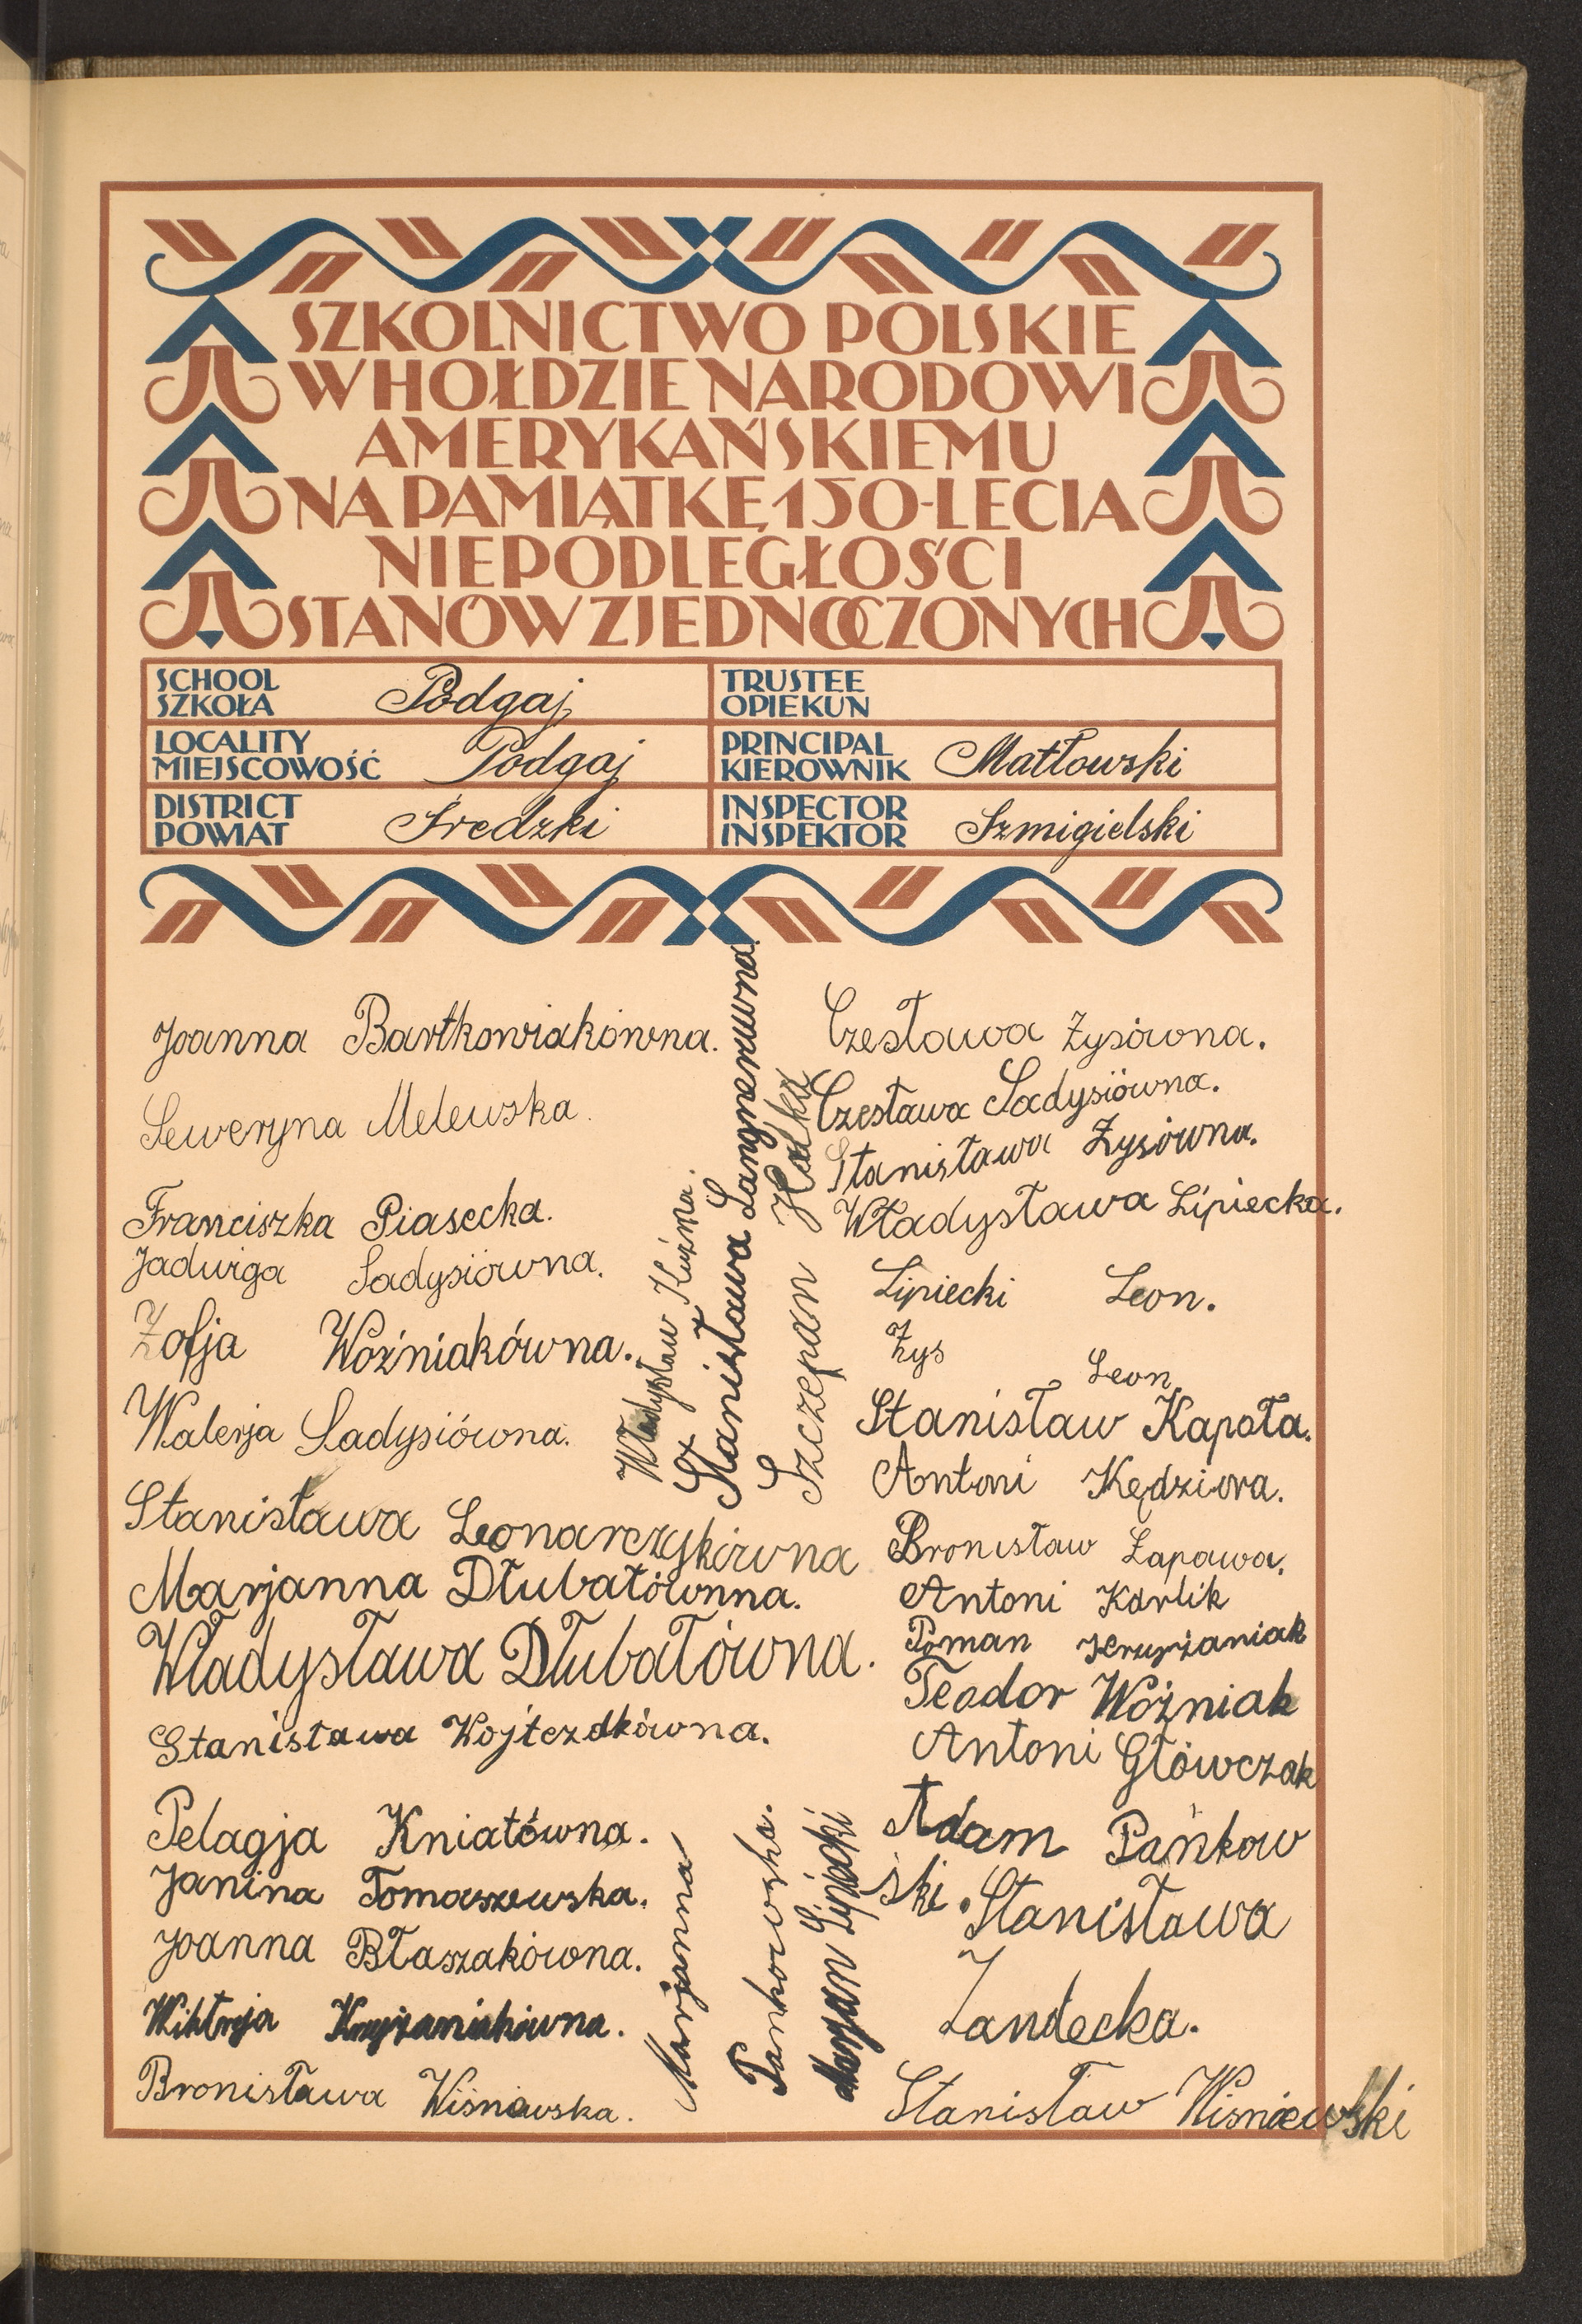 SZKOLNICTWO POLSKIE
W HOŁDZIE NARODOWI
AMERYKAŃSKIEMU
NA PAMIĄTKĘ 150-LECIA
NIEPODLEGŁOŚCI
STANÓW ZJEDNOCZONYCH
SCHOOL
SZKOŁA
Podgaj
TRUSTEE
OPIEKUN
LOCALITY
MIEJSCOWOŚĆ
Podgaj
PRINCIPAL
KIEROWNIK
Matłowski
DISTRICT
POWIAT
Średzki
INSPECTOR
INSPEKTOR
Szmigielski
Joanna Bartkowiakówna.
Seweryna Melewska.
Franciszka Piasecka.
Jadwiga Sadysiówna.
Zofja Woźniakówna.
Walerja Sadysiówna.
Stanisława Leonarczykówna
Marjanna Dłubatównna.
Władysława Dłubatówna.
Stanisława Wojtczakówna.
Pelagja Kniatówna.
Janina Tomaszewska.
Joanna Błaszakówna.
Wiktorja Krzyżaniakówna.
Bronisława Wiśniewska.
Władysław Kuźma.
Stanisława Langnerówna.
Szczepan Hałka
Marjanna
Pankowska.
Marjan Lipiecki
Czesława Zysówna.
Czesława Sadysiówna.
Stanisława Zysówna.
Władysława Lipiecka.
Lipiecki Leon.
Zys Leon
Stanisław Kapota.
Antoni Kędziora.
Bronisław Łapawa.
Antoni Karlik
Roman Krzyżaniak
Teodor Woźniak
Antoni Główczak
Adam Pańkow
ski.
Stanisława
Zandecka.
Stanisław Wisniewski